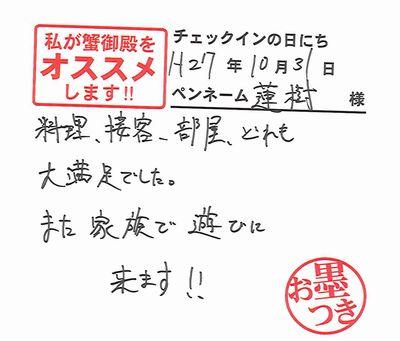 私が蟹御殿を
オススメ
します!!
チェックインの日にち
H27年10月31日
ペンネーム 蓮樹 様
料理、接客、部屋、どれも
大満足でした。
また家族で遊びに
来ます!!
お墨つき